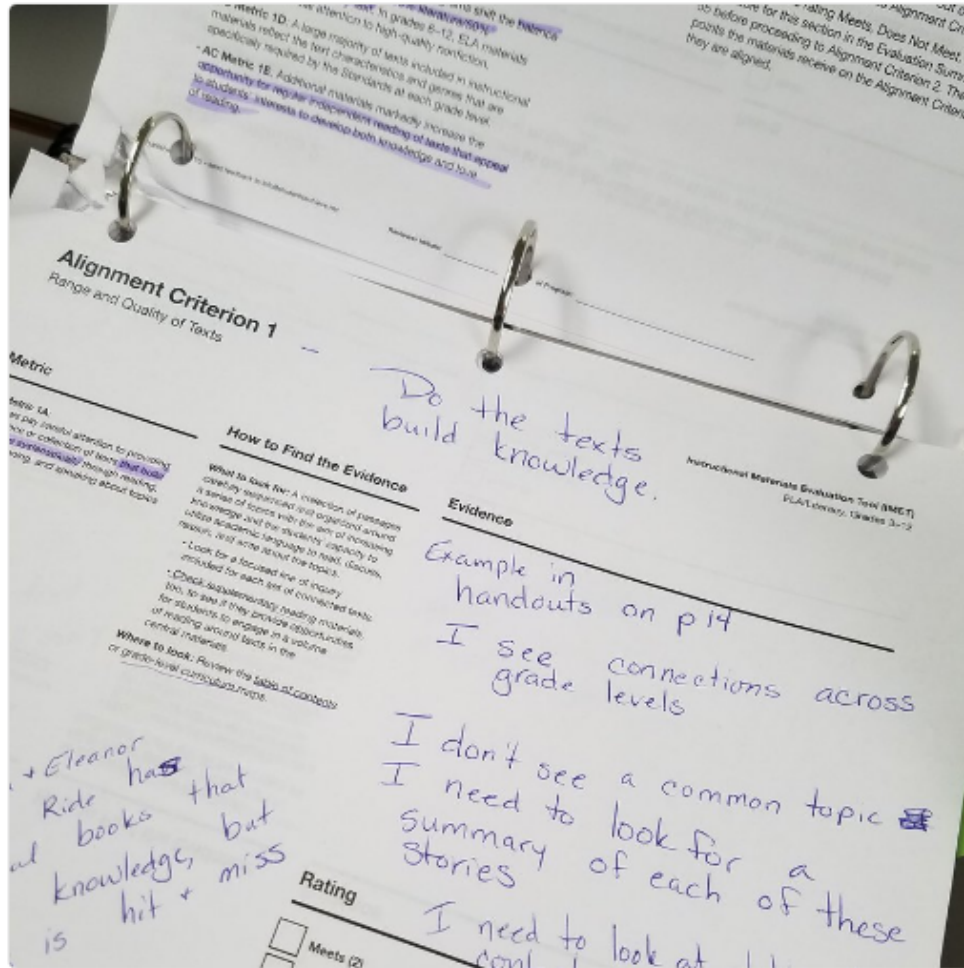 shift the balance
In grades 6–12, ELA materials
attention to high-quality nonfiction.
Metric 1D. A large majority of texts included in instructional
materials reflect the text characteristics and genres that are
specifically required by the Standards at each grade level.
• AC Metric 1E. Additional materials markedly increase the
opportunity for regular independent reading of texts that appeal
to students' interests to develop both knowledge and love
of reading.
rating Meets, Does Not Meet,
for this section in the Evaluation Summ
before proceeding to Alignment Criterion 2. The
points the materials receive on the Alignment Criteri
they are aligned.
Alignment Criterion 1
Range and Quality of Texts
Do the texts
build knowledge.
Instructional Materials Evaluation Tool (IMET)
ELA/Literacy, Grades 3–12
Metric
Metric 1A.
pay careful attention to providing
or collection of texts that build
systematically through reading,
and speaking about topics
How to Find the Evidence
What to look for: A collection of passages
carefully sequenced and organized around
a series of topics with the aim of increasing
knowledge and the students' capacity to
utilize academic language to read, discuss,
reason, and write about the topics.
• Look for a focused line of inquiry
included for each set of connected texts.
• Check supplementary reading materials,
too, to see if they provide opportunities
for students to engage in a volume
of reading around texts in the
central materials.
Where to look: Review the table of contents
or grade-level curriculum maps.
Evidence
Example in
handouts on p 14
I see connections across
grade levels
I don't see a common topic
I need to look for a
summary of each of these
stories
I need to look at
+ Eleanor
Ride has
books that
knowledge, but
is hit + miss
Rating
Meets (2)